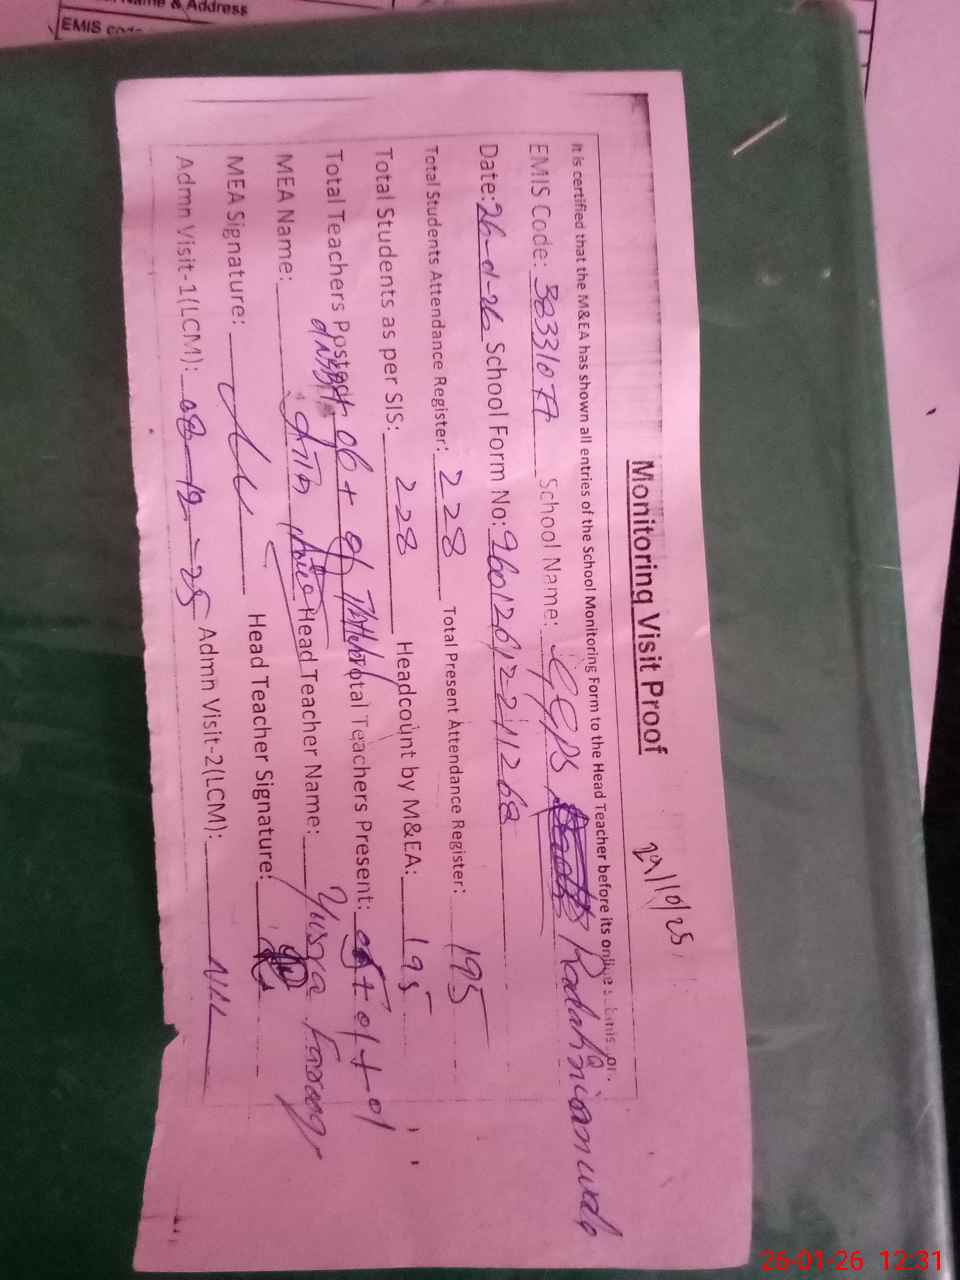 Name & Address
EMIS
Monitoring Visit Proof
29/10/25
It is certified that the M&EA has shown all entries of the School Monitoring Form to the Head Teacher before its online
EMIS Code: 3833107 School Name: GGPS
Date: 26-01-26 School Form No:
Total Students Attendance Register: 228 Total Present Attendance Register: 195
Total Students as per SIS: 228 Headcount by M&EA: 195
Total Teachers Posted: 06 + 01 Total Teachers Present: + 01 + 01
MEA Name: Head Teacher Name: Yusra Farooq
MEA Signature: Head Teacher Signature:
Admn Visit-1(LCM): 08-12-25 Admn Visit-2(LCM): NIL
26-01-26 12:31